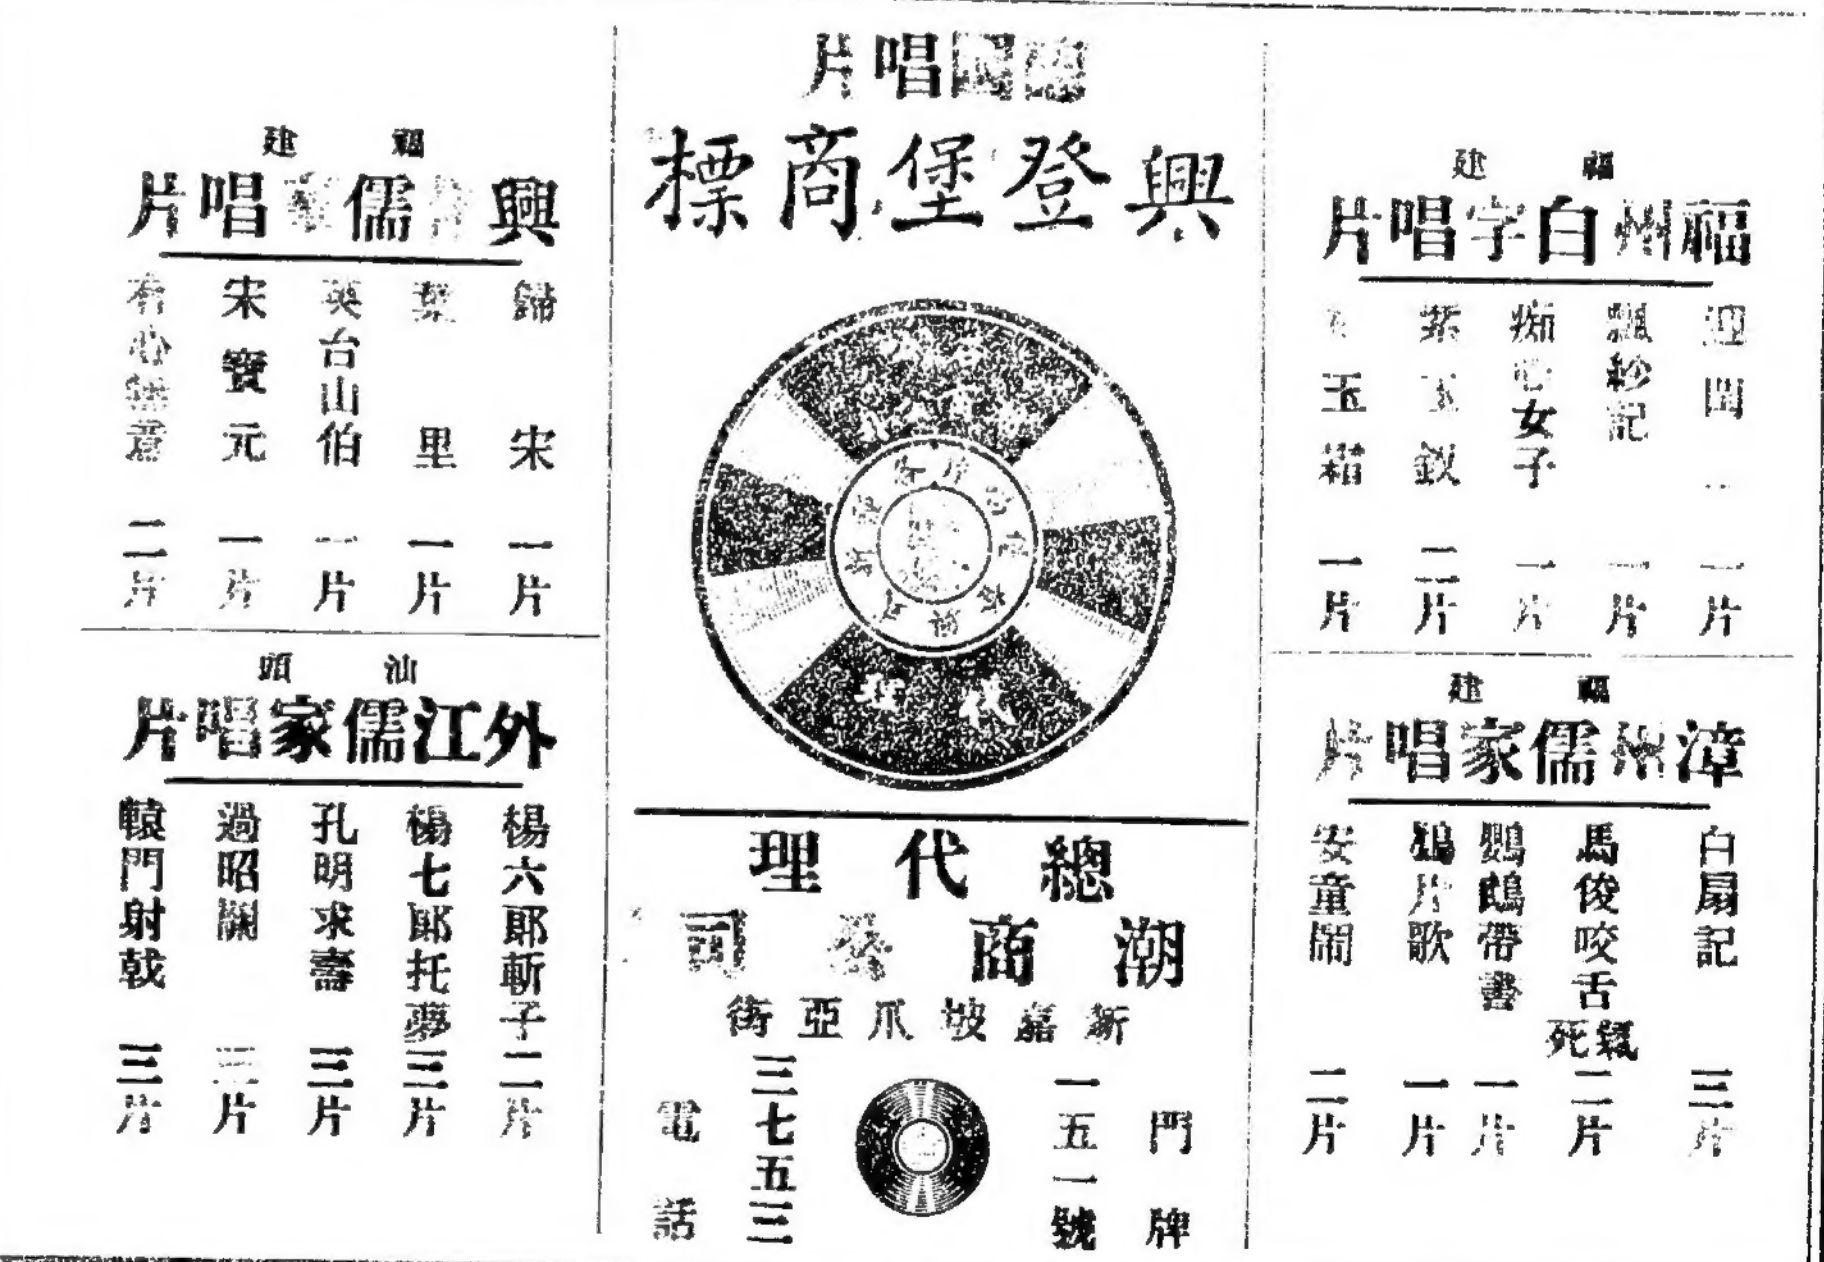 唱片
興登堡商標
代理
總代理
潮商公司
新嘉坡爪亞街
門牌
一五一號
電話
三七五三
福建
福州白字唱片
迎
一片
飄紗記
一片
痴心女子
一片
紫玉釵
二片
玉霜
一片
福建
漳州儒家唱片
白扇記
三片
馬俊咬舌氣死
二片
鸚鵡帶書
一片
鴉片歌
一片
安童鬧
二片
福建
興化儒家唱片
歸宋
一片
葉里
一片
英台山伯
一片
宋寶元
一片
有心無意
二片
汕頭
外江儒家唱片
楊六郎斬子
二片
楊七郎托夢
三片
孔明求壽
三片
過昭關
三片
轅門射戟
三片